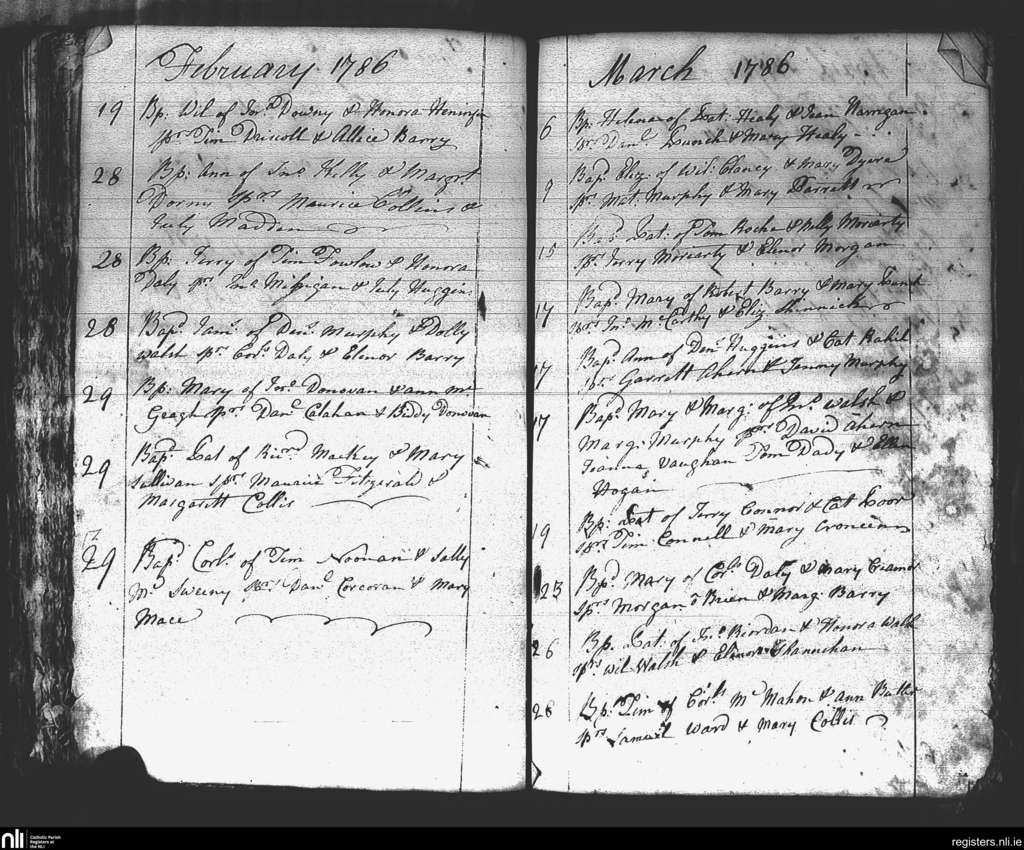 February 1786
19 Bp. Wil of Jon.ⁿ Downy & Honora
sprs Tim Driscoll & Allice Barry
28 Bp: Ann of Jnº Kelly & Margrt
Dorny Spors Maurice Collins &
July Madden
28 Bp: Terry of Tim Fowlow & Honora
Daly prs Jnº Missigan & July Huggins
28 Bapd Jams of Denˢ Murphy & Dolly
Walsh prs Cors Daly & Elenor Barry
29 Bp: Mary of Donovan & Ann Mc
Geagh sprs Danl Calahan & Biddy Donovan
29 Bapd Cat of Ricrd Mackey & Mary
Sullivan sprs Maurice Fitzgerald &
Margarett Collis
29 Bapd Corls of Tim Noonan & Sally
Mc Sweeny sprs Danl Corcoran & Mary
Mace
March 1786
6 Bp: of Pat: Healy & Jean Narrigan
sprs Danl Lunch & Mary Healy
9 Bapd Eliz: of Wil: Clancy & Mary Dyera
sprs Mat. Murphy & Mary Barrett
15 Bapd Cat: of Tom Roche & Nelly Moriarty
sprs Terry Moriarty & Elenor Morgan
17 Bapd Mary of Robert Barry & Mary Lunch
sprs Jnº McCarthy & Eliz Shinnick
17 Bapd Ann of Denˢ Huggins & Cat Kahil
sprs Garrett Ahern & Murphy
17 Bapd Mary & Marg: of Jnº Walsh &
Marg: Murphy sprs David Ahern
Joanna Vaughan Tom Dady & Ellen
Hogan
19 Bp: Cat of Terry Connor & Cat
sprs Tim Connell & Mary
23 Bpd Mary of Cors Daly & Mary Creamor
sprs Morgan o Brien & Marg: Barry
26 Bp. Cat. of Jnº Riordan & Honora Walsh
sprs Wil Walsh & Elenor Shannihan
28 Bp: Tim of Cors Mc Mahon & Ann Butler
sprs Samuel Ward & Mary Collis
nli
Catholic Parish
Registers at
the NLI
registers.nli.ie